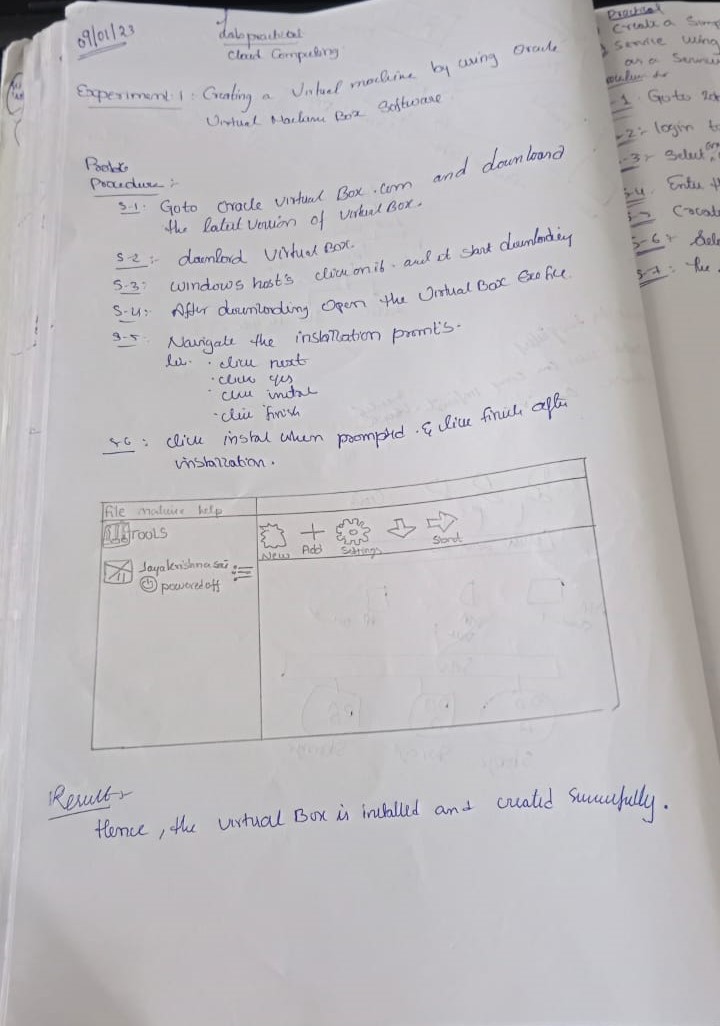 09/01/23
Lab practical
Cloud Computing
Experiment: 1: Creating a Virtual machine by using Oracle
Virtual Machine Box Software
Procedure :-
S-1: Goto Oracle Virtual Box.com and download
the latest version of Virtual Box.
S-2 :- download Virtual Box.
S-3: windows host's click on it. and it start downloading
S-4: After downloading Open the Virtual Box Exe file.
S-5: Navigate the installation promt's.
• click next
• click yes
• click instal
• click finish
S-6 : click instal when prompted. & click finish after
installation.
File machine help
TOOLS
New Add Settings Start
Jayakrishna sai
powered off
Result :-
Hence, the virtual Box is installed and created successfully.
Practical
Create a Simp
Service Using
as a Service
1. Goto
2:- login to
3:- Select
4. Enter th
Create
S-6 :- Sele
S-7 : The